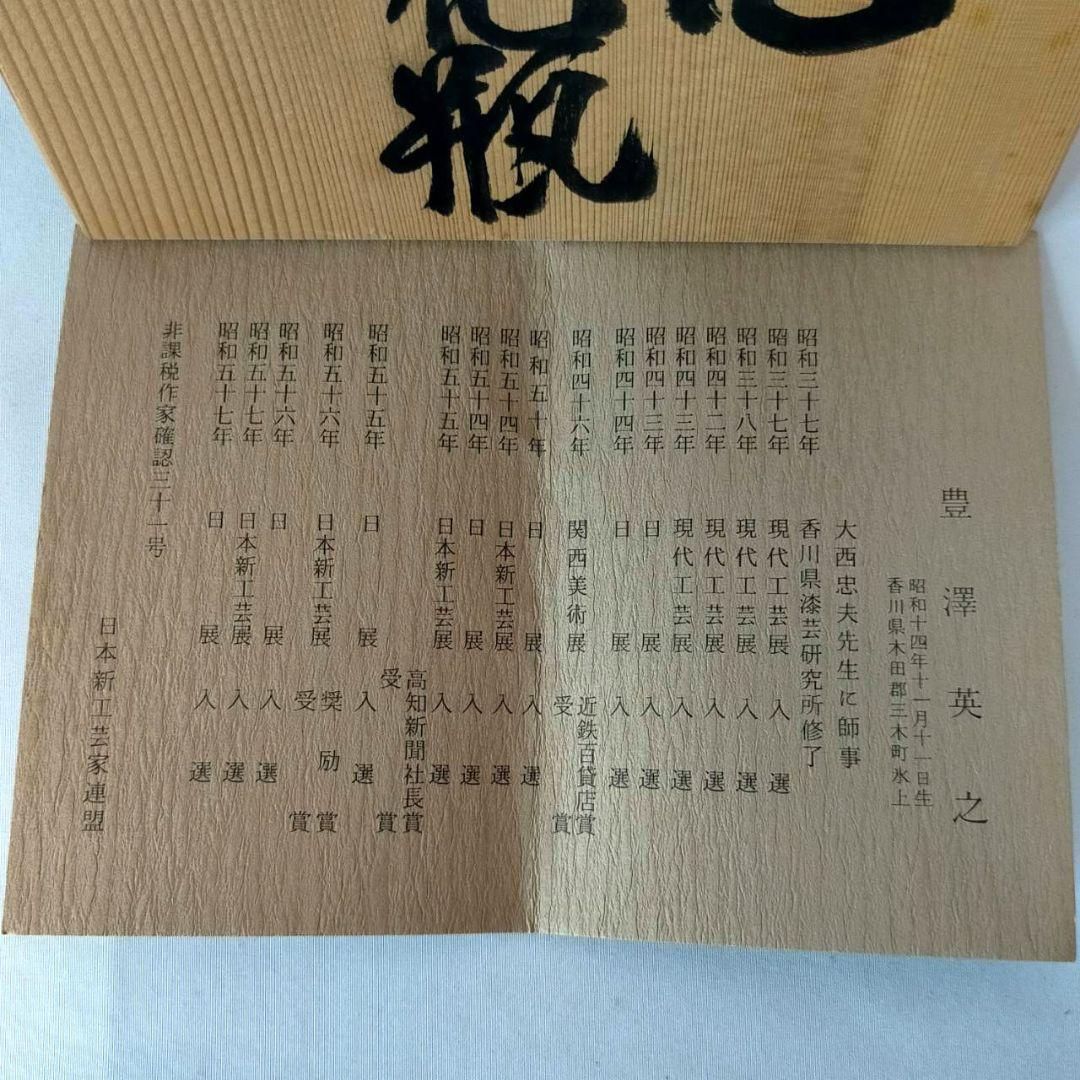 花瓶
豊澤英之
昭和十四年十一月十一日生
香川県木田郡三木町氷上
大西忠夫先生に師事
昭和三十七年 香川県漆芸研究所修了
昭和三十七年 現代工芸展 入選
昭和三十八年 現代工芸展 入選
昭和四十二年 現代工芸展 入選
昭和四十三年 現代工芸展 入選
昭和四十三年 日展 入選
昭和四十四年 日展 入選
昭和四十六年 関西美術展 近鉄百貨店賞
受賞
昭和五十年 日展 入選
昭和五十四年 日本新工芸展 入選
昭和五十四年 日展 入選
昭和五十五年 日本新工芸展 入選
高知新聞社長賞
受賞
昭和五十五年 日展 入選
昭和五十六年 日本新工芸展 奨励賞
受賞
昭和五十六年 日展 入選
昭和五十七年 日本新工芸展 入選
昭和五十七年 日展 入選
非課税作家確認三十一号
日本新工芸家連盟